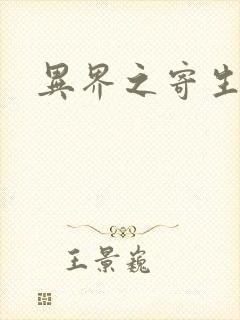 異界之寄生
王景巍